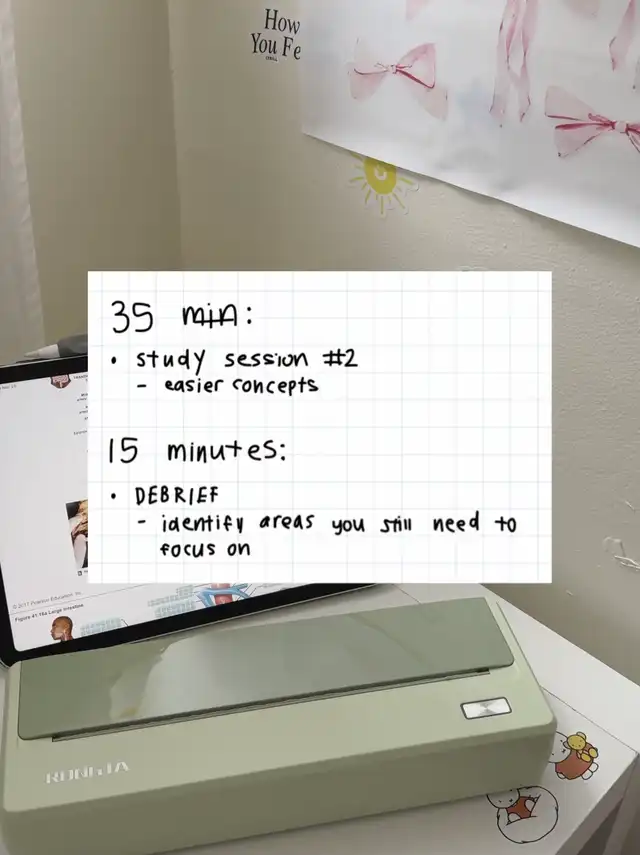 How
You Fe
35 min:
• study session #2
- easier concepts
15 minutes:
• DEBRIEF
- identify areas you still need to
focus on
© 2017 Pearson Education, Inc.
Figure 41.16a Large Intestine